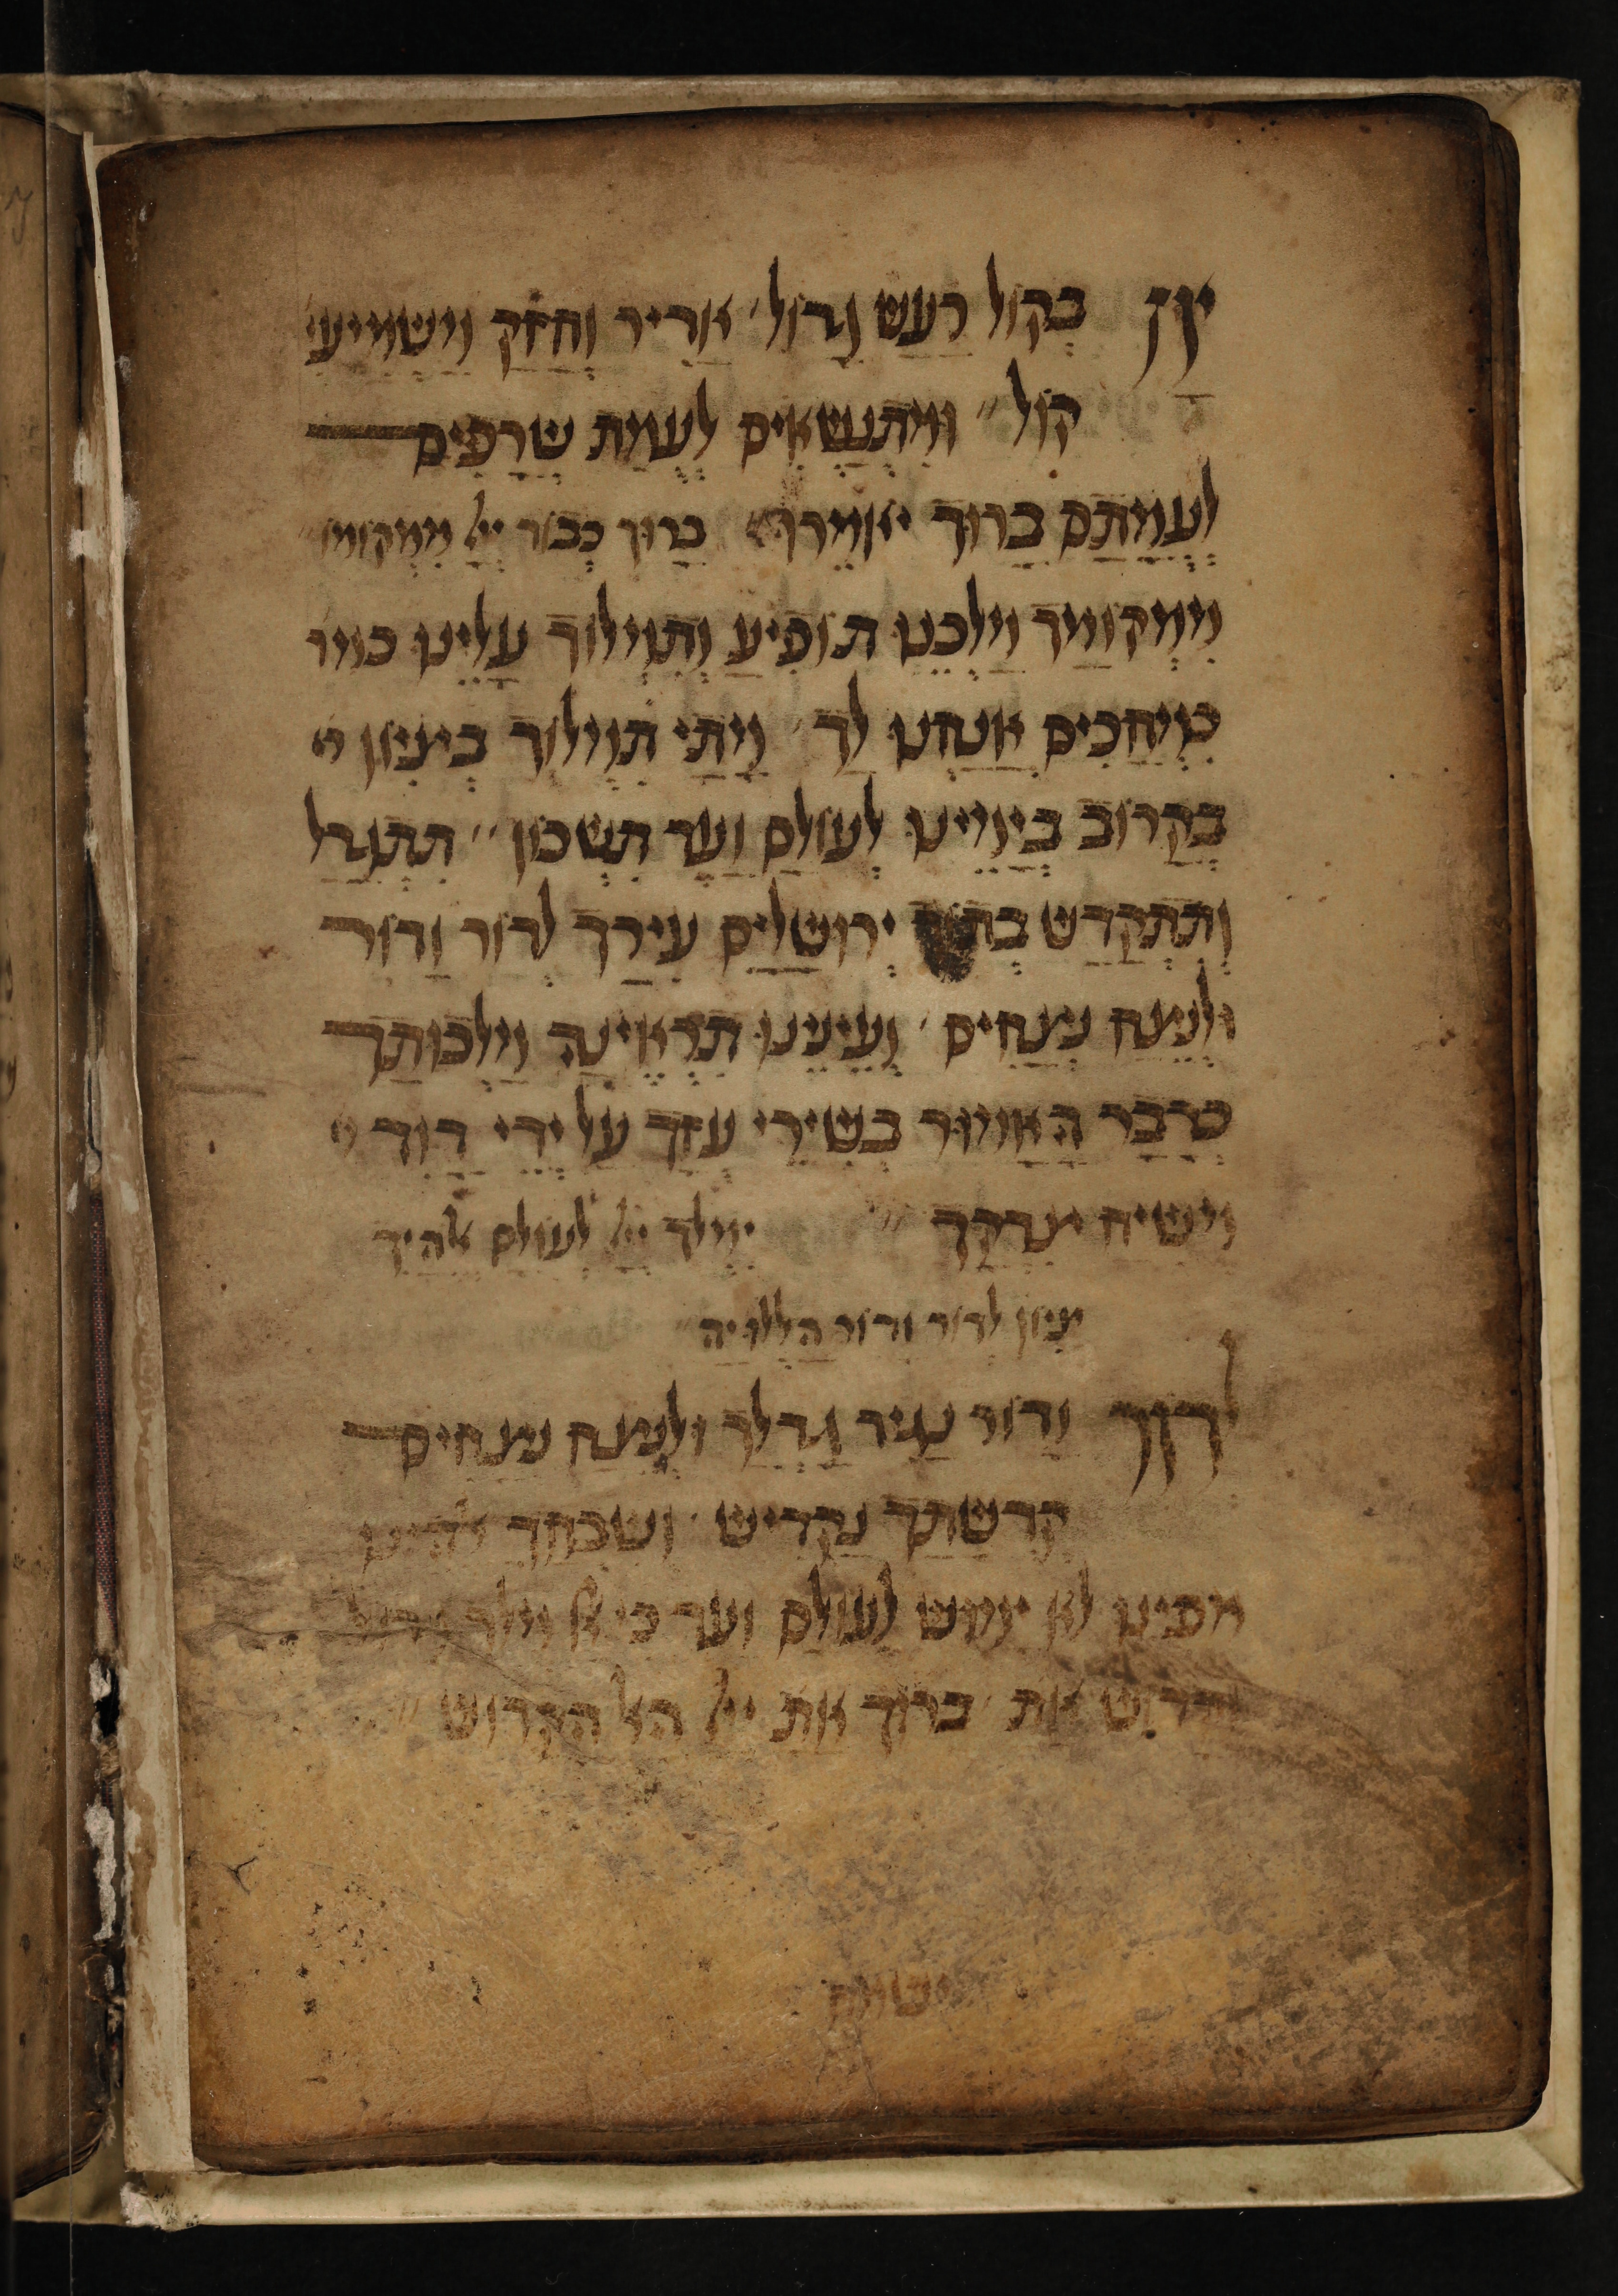 בְקוֹל רַעַשׁ גָדוֹל אַדִיר וְחָזָק מַשְׁמִיעִי
קוֹל וּמִתְנַשְּׂאִים לְעֻמַת שְׂרָפִים
לְעֻמָתָם בָרוּךְ יֹאמֵרוּ בָרוּךְ כְבוֹד ייָ מִמְקוֹמוֹ
מִמְקוֹמָךְ מַלְכֵנוּ תוֹפִיעַ וְתִמְלוֹךְ עָלֵינוּ כִי
מְחַכִים אֲנַחְנוּ לָךְ מָתַי תִמְלוֹךְ בְצִיוֹן
בְקָרוֹב בְיָמֵינוּ לְעוֹלָם וָעֶד תִשְׁכוֹן תִתְגַדַל
וְתִתְקַדַשׁ בְתוֹךְ יְרוּשָׁלַיִם עִירָךְ לְדוֹר וָדוֹר
וּלְנֵצַח נְצָחִים וְעֵינֵינוּ תִרְאֶינָה מַלְכוּתָךְ
כַדָבָר הָאָמוּר בְשִׁירֵי עֻזָךְ עַל יְדֵי דָוִד
מְשִׁיחַ צִדְקָךְ יִמְלֹךְ ייָ לְעוֹלָם אלהַיִךְ
צִיוֹן לְדוֹר וָדוֹר הַלְלוּיָהּ
לדור וָדוֹר נַגִיד גָדְלָךְ וּלְנֵצַח נְצָחִים
קְדֻשָׁתָךְ נַקְדִישׁ וְשִׁבְחָךְ אלהינו
מפינו לא ימוש לְעוֹלָם ועד כי אל מלך גדול
וקדוש אַתָ ברוך אַתָ ייָ האל הקדוש